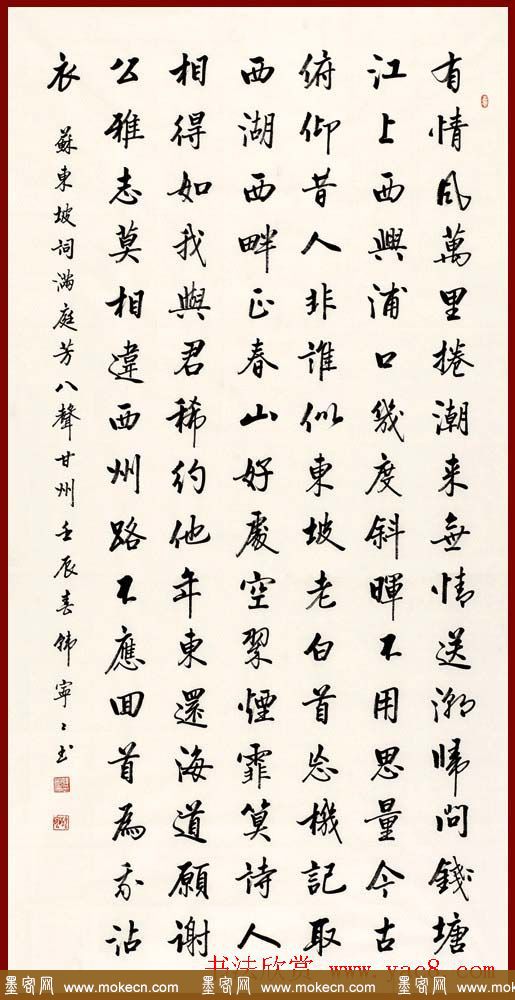 有情風萬里捲潮来無情送潮歸問錢塘
江上西興浦口幾度斜暉不用思量今古
俯仰昔人非誰似東坡老白首忘機記取
西湖西畔正春山好處空翠煙霏算詩人
相得如我與君稀約他年東還海道願謝
公雅志莫相違西州路不應回首為我沾
衣
蘇東坡詞滿庭芳八聲甘州壬辰春韩寧〻书
书法欣赏 www.yac8.com
墨客网 www.mokecn.com 墨客网 www.mokecn.com 墨客网 www.mokecn.com